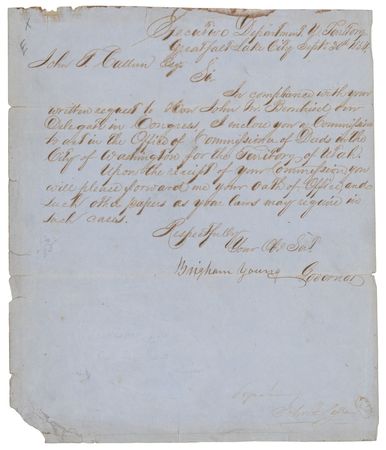 Executive Department, U. Territory
Great Salt Lake City Sept. 30th 1854
John T. Callan Esqr
Sir
In compliance with your
written request to Hon John M. Bernhisel our
Delegate in Congress, I enclose you a Commission
to act in the Office of Commissioner of Deeds in the
City of Washington for the Territory of Utah.
Upon the receipt of your Commission you
will please forward me your oath of Office, and
such other papers as your laws may require in
such cases.
Respectfully
Your Obt Svt
Brigham Young Governor